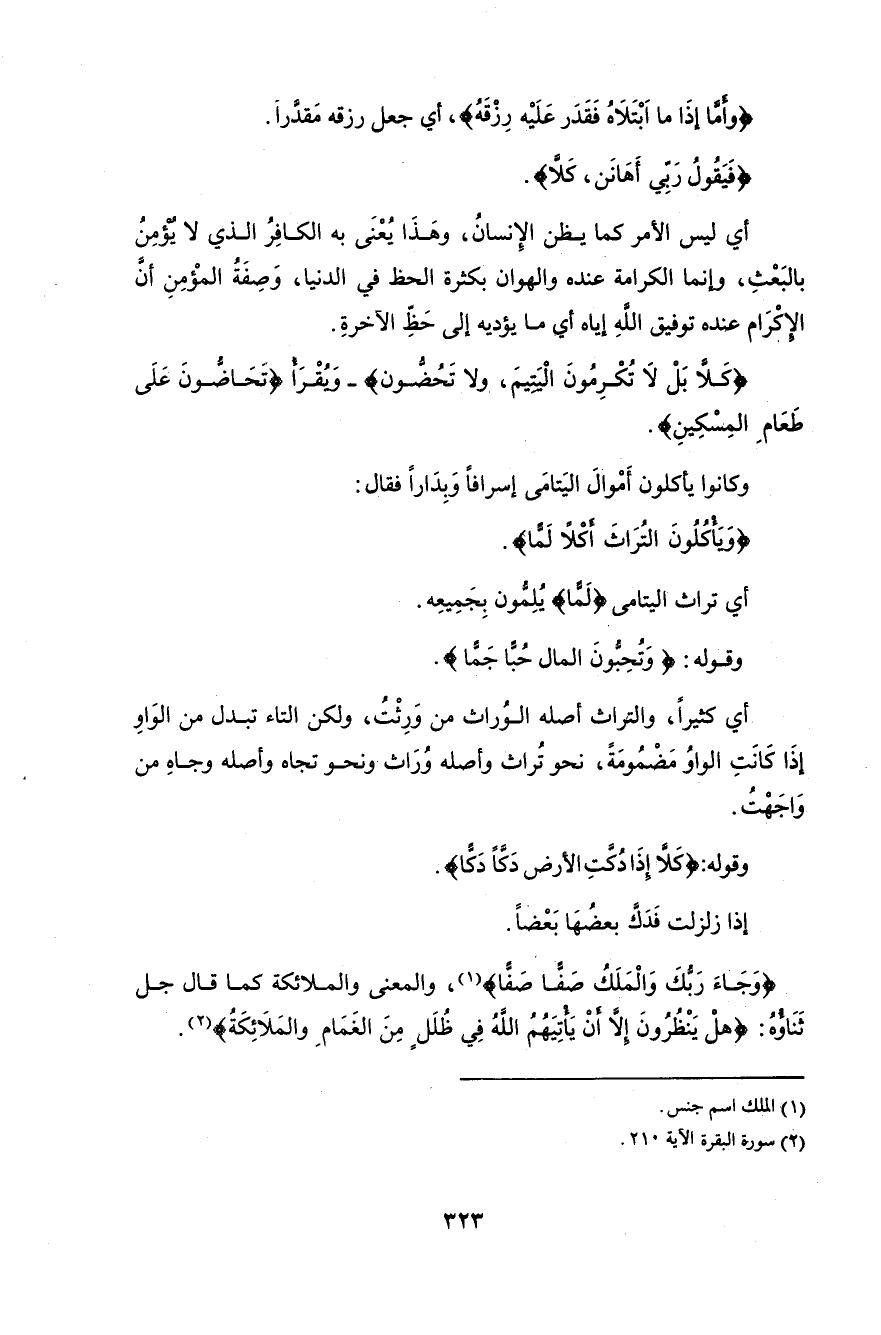 ﴿وأَمَّا إذَا ما اَبْتَلَاهُ فَقَدَر عَلَيْه رِزْقَهُ﴾، أي جعل رزقه مَقدَّراً.
﴿فَيَقُولُ رَبِّي أَهَانَن، كَلَّا﴾.
أي ليس الأمر كما يـظن الإنسانُ، وهَـذَا يُعْنَى به الكـافِرُ الـذي لا يُؤْمِنُ
بالبَعْثِ، وإنما الكرامة عنده والهوان بكثرة الحظ في الدنيا، وَصِفَةُ المؤْمِنِ أنَّ
الإكْرَام عنده توفيق اللَّهِ إياه أي مـا يؤديه إلى حَظِّ الآخرةِ.
﴿كَـلَّا بَلْ لَا تُكْـرِمُونَ الْيَتِيمَ، ولا تَحُضُّـون﴾ ـ وَيُقْـرَأُ ﴿تَحَـاضُّـونَ عَلَى
طَعَامِ المِسْكِينِ﴾.
وكانوا يأكلون أَمْوالَ اليَتامَى إسرافاً وَبِدَاراً فقال:
﴿وَيَأْكُلُونَ التُرَاثَ أَكْلًا لَمَّا﴾.
أي تراث اليتامى ﴿لَمَّا﴾ يُلِمُّون بِجَمِيعِه.
وقـوله: ﴿ وَتُحِبُّونَ المال حُبًّا جَمًّا ﴾.
أي كثيراً، والتراث أصله الـوُراث من وَرِثْتُ، ولكن التاء تبـدل من الوَاوِ
إذَا كَانَتِ الواوُ مَضْمُومَةً، نحو تُراث وأصله وُرَاث ونحـو تجاه وأصله وجـاهِ من
وَاجَهْتُ.
وقوله:﴿كَلَّا إِذَا دُكَّتِ الأرض دَكَّاً دَكًّا﴾.
إذا زلزلت فَدَكَّ بعضُهَا بَعْضاً.
﴿وَجَـاءَ رَبُّكَ وَالْمَلَكُ صَفًّـا صَفًّا﴾(١)، والمعنى والمـلائكة كمـا قال جـل
ثَنَاؤُهُ: ﴿هلْ يَنْظُرُونَ إلَّا أَنْ يَأْتِيَهُمُ اللَّهُ فِي ظُلَلٍ مِنَ الغَمَامِ والمَلَائِكَةُ﴾(٢).
(١) الملك اسم جنس.
(٢) سورة البقرة الآية ٢١٠.
٣٢٣